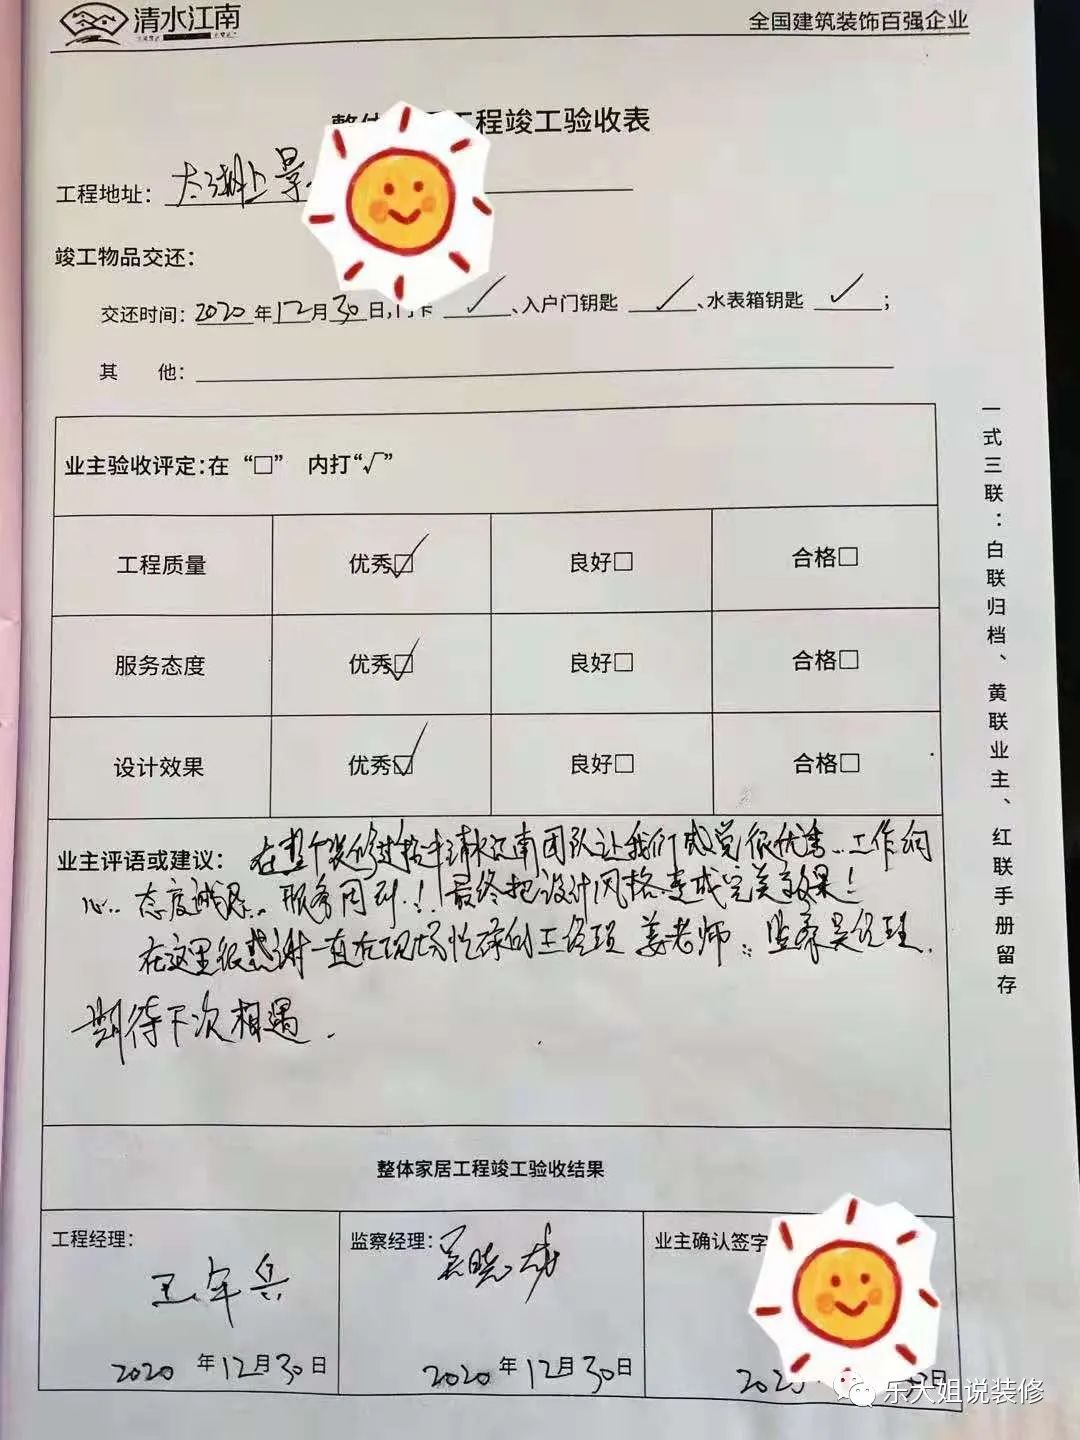 清水江南
全国建筑装饰百强企业
工程竣工验收表
工程地址: 太湖上景
竣工物品交还:
交还时间: 2020年12月30日,门卡 ✓、入户门钥匙 ✓、水表箱钥匙 ✓;
其 他:
业主验收评定:在“□” 内打“√”
工程质量 优秀☑ 良好□ 合格□
服务态度 优秀☑ 良好□ 合格□
设计效果 优秀☑ 良好□ 合格□
业主评语或建议: 在整个装修过程中清水江南团队让我们感觉很优秀..工作细
心..态度诚恳..服务周到!!最终把设计风格变成完美效果!
在这里很感谢一直在现场忙碌的王经理 姜老师.. 监察吴经理.
期待下次相遇.
整体家居工程竣工验收结果
工程经理: 王军兵
监察经理: 吴晓
业主确认签字
2020年12月30日
2020年12月30日
日
一式三联:白联归档、黄联业主、红联手册留存
乐大姐说装修